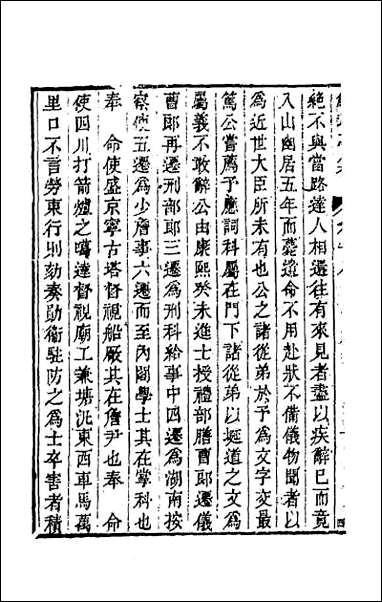 絶不與當路達人相還往有來見者盡以疾辭已而竟
入山幽居五年而薨遺命不用赴狀不備儀物聞者以
爲近世大臣所未有也公之諸從弟於予爲文字交最
篤公嘗薦予應詞科屬在門下諸從弟以埏道之文爲
屬義不敢辭公由康熙癸未進士授禮部膳曹郎遷儀
曹郎再遷刑部郎三遷爲刑科給事中四遷爲湖南按
察使五遷爲少詹事六遷而至內閣學士其在掌科也
奉　命使盛京寧古塔督視船厰其在詹尹也奉　命
使四川打箭爐之噶達督視廟工兼塘汛東西車馬萬
里口不言勞東行則劾奏勛衞駐防之爲士卒害者積